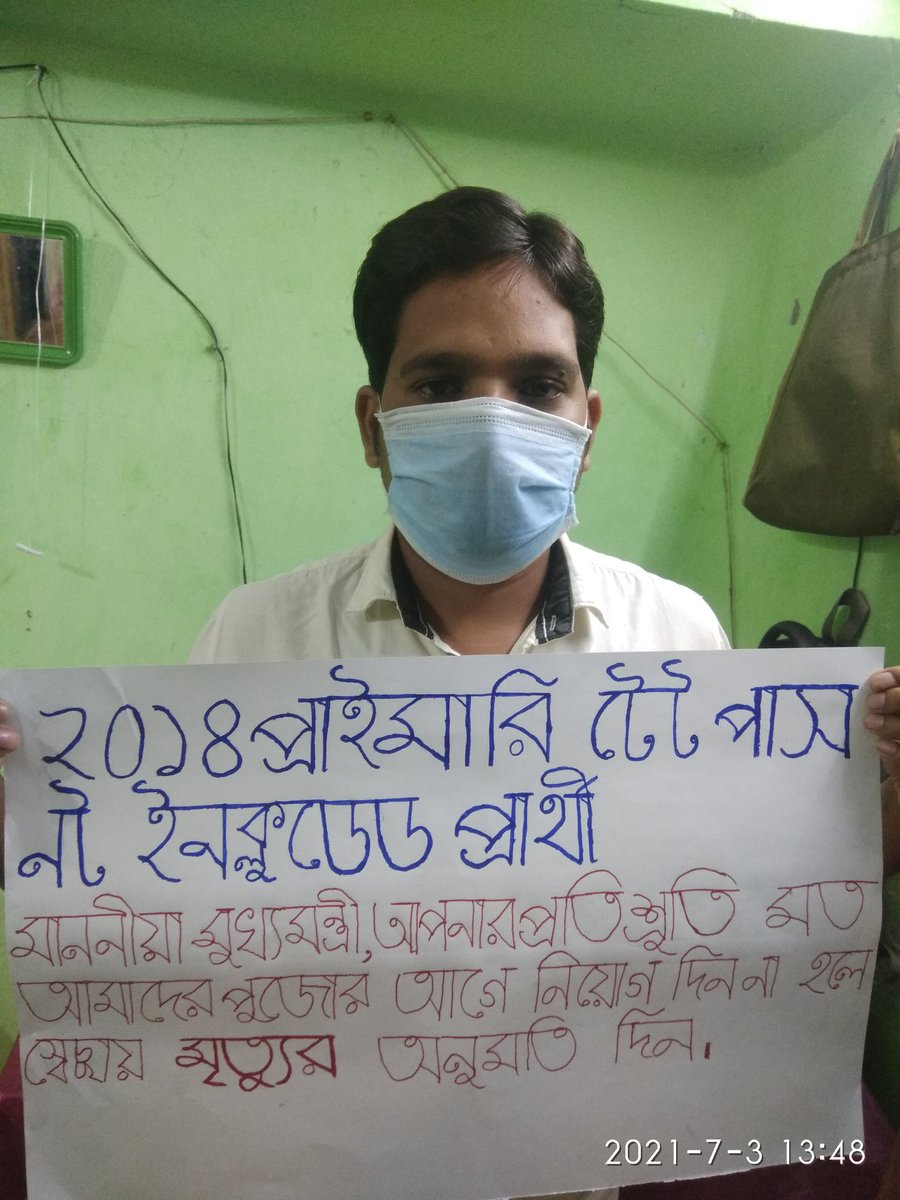 ২০১৪ প্রাইমারি টেট পাস
নট ইনক্লুডেড প্রার্থী
মাননীয়া মুখ্যমন্ত্রী, আপনার প্রতিশ্রুতি মত
আমাদের পুজোর আগে নিয়োগ দিন না হলে
স্বেচ্ছায় মৃত্যুর অনুমতি দিন।
2021-7-3 13:48